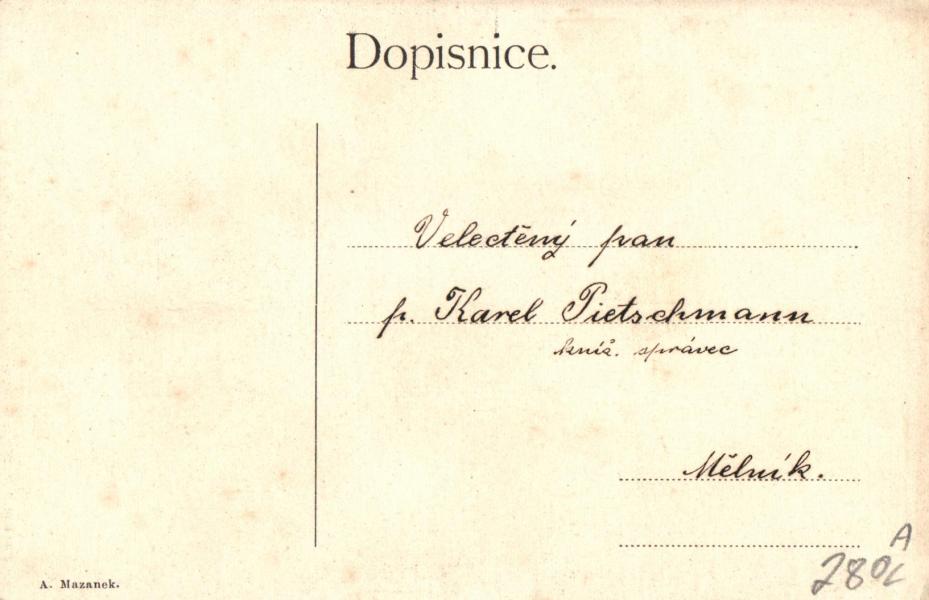 Dopisnice.
Velectěný pan
p. Karel Pietschmann
kníž. správec
Mělník.
A. Mazanek.
A
280